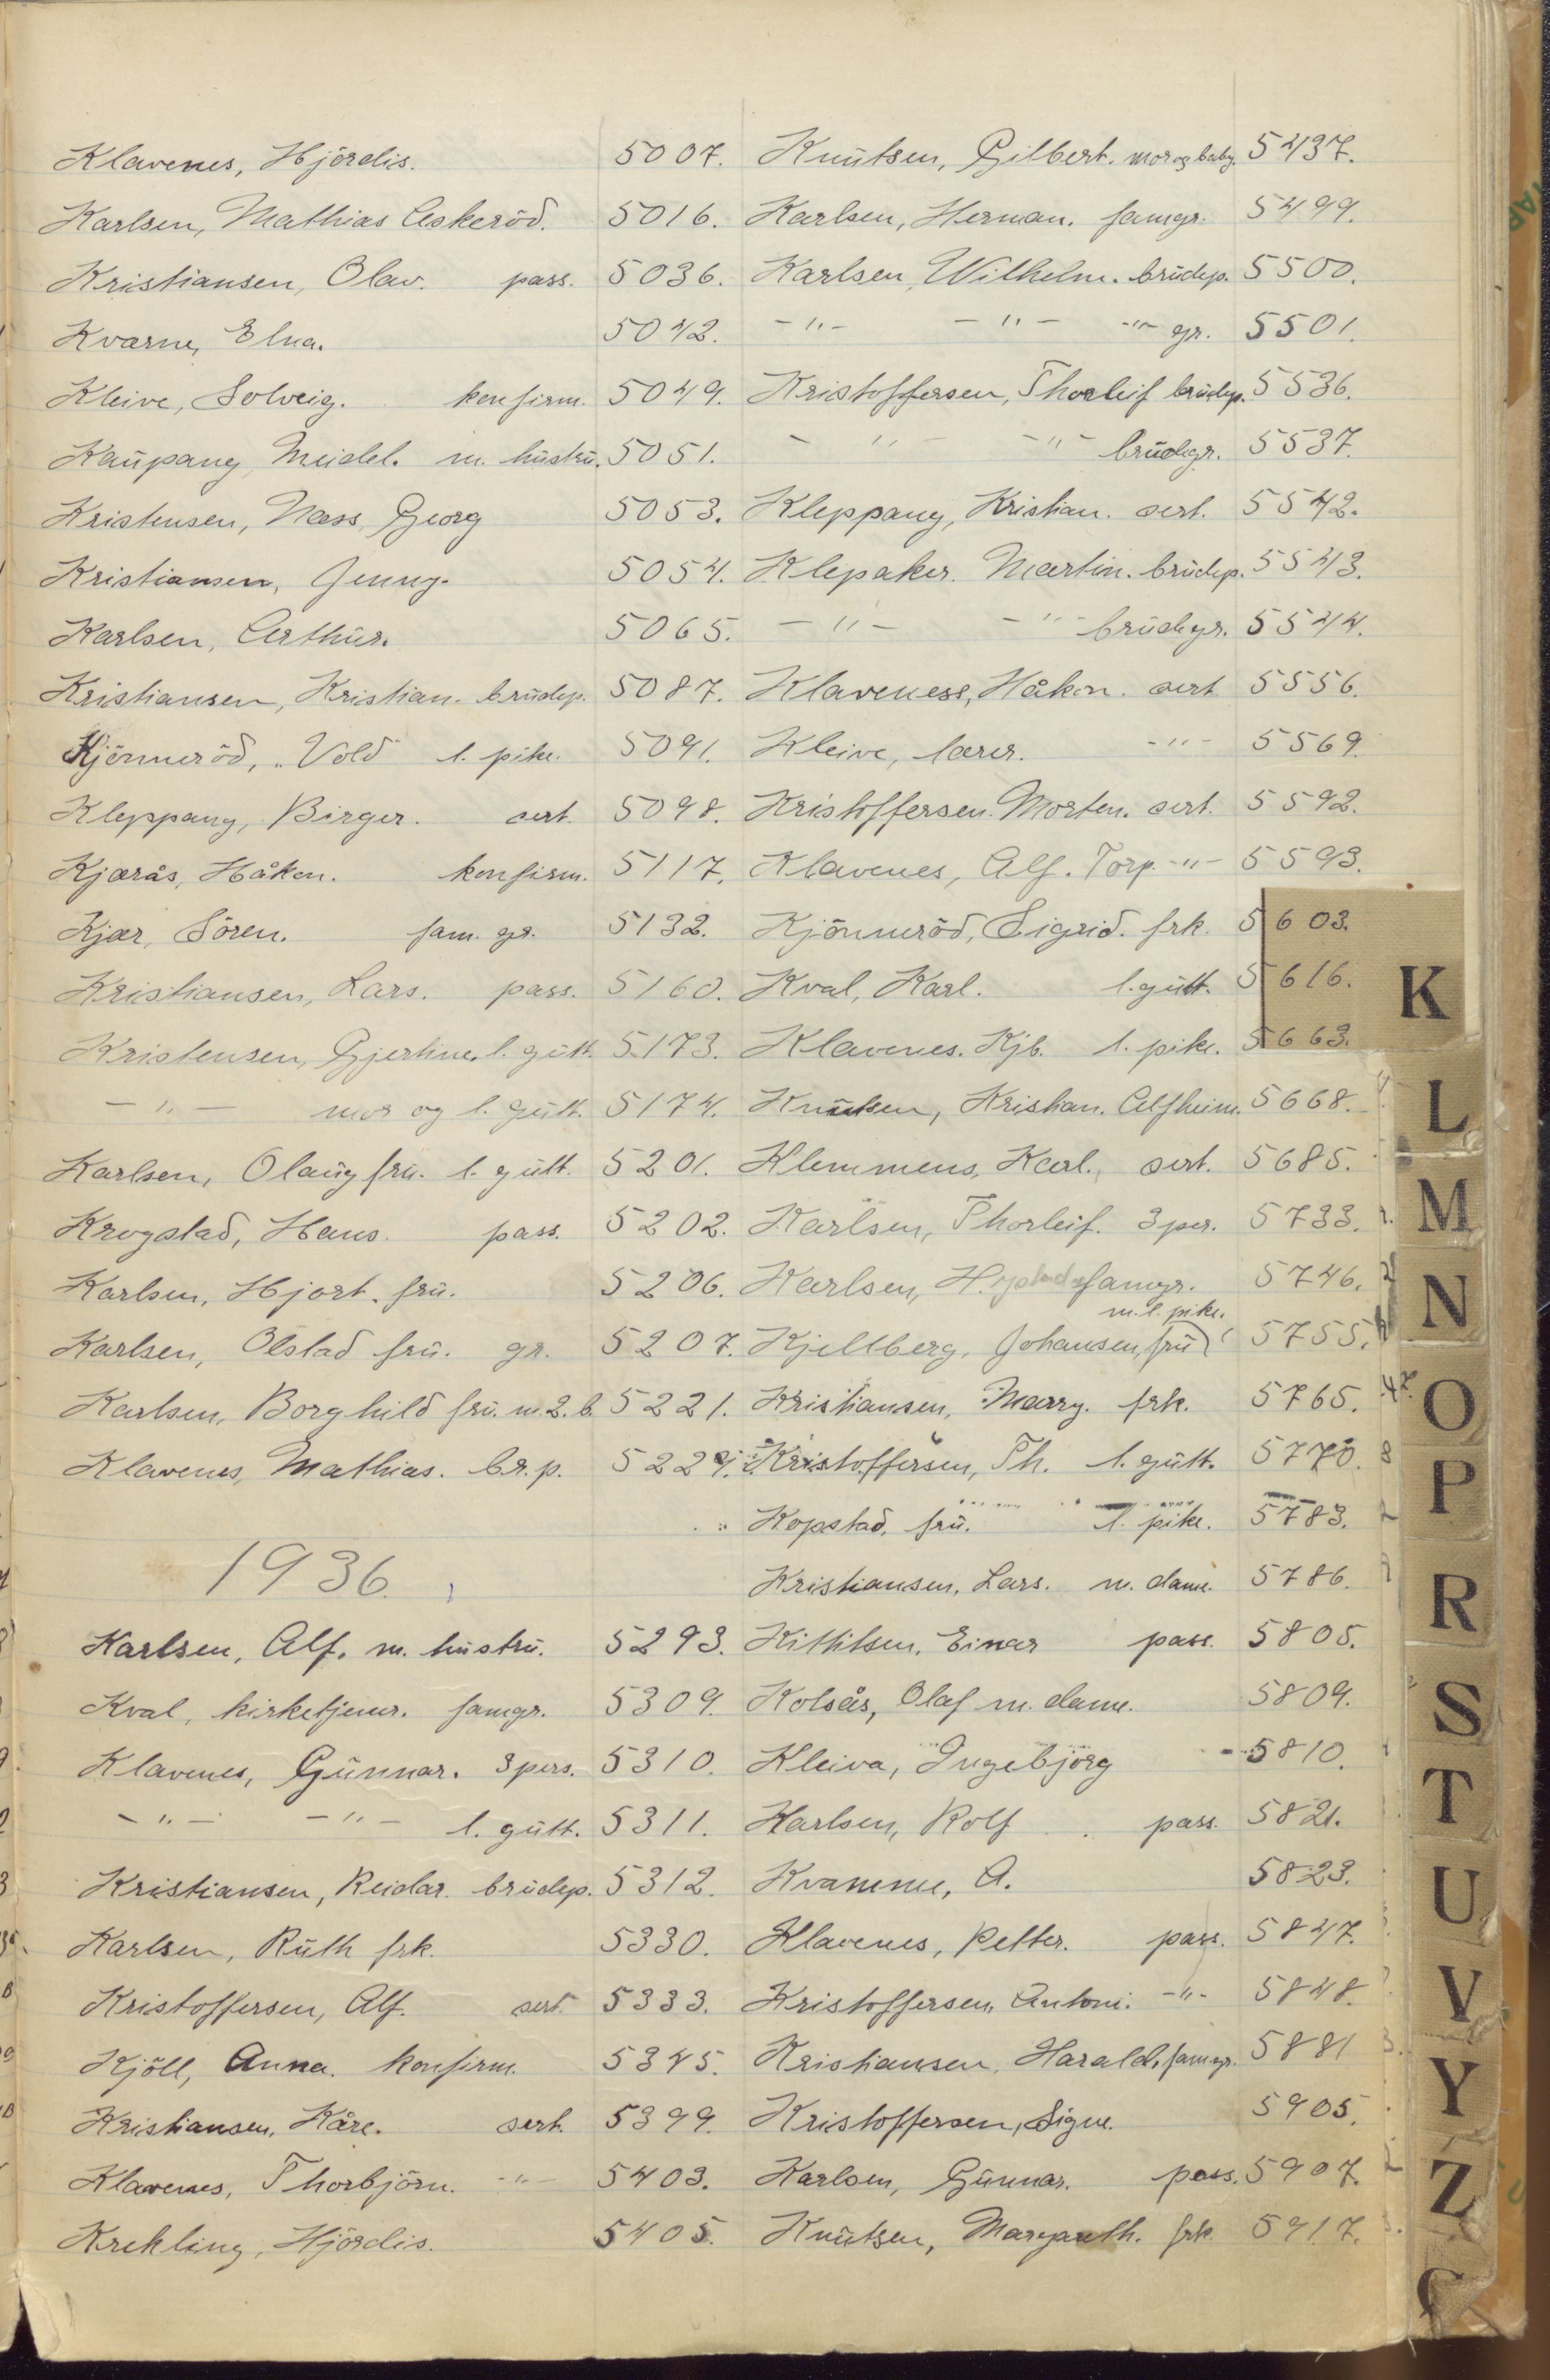 Klavenes, Hjördis. 5007.
Karlsen, Mathias Askeröd. 5016.
Kristiansen, Olav. pass. 5036.
Kvarne, Elna. 5042.
Kleive, Solveig. konfirm. 5049.
Kaupang, Meidel. m. hustru. 5051.
Kristensen, Næss, Georg 5053.
Kristiansen, Jenny. 5054.
Karlsen, Arthur. 5065.
Kristiansen, Kristian. brudep. 5087.
Kjönneröd, "Vold" l. pike. 5091.
Kleppang, Birger. sert. 5098.
Kjærås, Håkon. konfirm. 5117.
Kjær, Sören. fam. gr. 5132.
Kristiansen, Lars. pass. 5160.
Kristensen, Gjertine. l. gutt. 5173.
-"- mor og l. gutt. 5174.
Karlsen, Olaug fru. l. gutt. 5201.
Krogstad, Hans. pass. 5202.
Karlsen, Hjort. fru. 5206.
Karlsen, Olstad fru. gr. 5207.
Karlsen, Borghild fru. m 2. b. 5221.
Klavenes, Mathias. br. p. 5229.
1936.
Karlsen, Alf. m. hustru. 5293.
Kval, kirketjener. famgr. 5309.
Klavenes, Gunnar. 3 pers. 5310.
-"- -"- l. gutt. 5311.
Kristiansen, Reidar. brudep. 5312.
Karlsen, Ruth frk. 5330.
Kristoffersen, Alf. sert. 5333.
Kjöll, Anna. konfirm. 5345.
Kristiansen, Kåre. sert. 5399.
Klavenes, Thorbjörn. -"- 5403.
Krekling, Hjördis. 5405.
Knutsen, Gilbert. mor og baby. 5437.
Karlsen, Herman. famgr. 5499.
Karlsen, Wilhelm. brudep. 5500.
-"- -"- -"- gr. 5501.
Kristoffersen, Thorleif brudep. 5536.
-"- -"- brudegr. 5537.
Kleppang, Kristian. sert. 5542.
Klepaker. Martin. brudep. 5543.
-"- -"- brudegr. 5544.
Klaveness, Håkon. sert 5556.
Kleive, lærer. -"- 5569.
Kristoffersen. Morten. sert. 5592.
Klavenes, Alf. Torp. -"- 5593.
Kjönneröd, Sigrid. frk. 5603.
Kval, Karl. l. gutt. 5616.
Klavenes. Kjb. l. pike. 5663.
Knutsen, Kristian. Alfheim. 5668.
Klemmens, Karl. sert. 5685.
Karlsen, Thorleif. 3 per. 5733.
Karlsen, H. famgr. 5746.
m. l. pike.
Kjellberg, Johansen, fru 5755.
Kristiansen, Marry. frk. 5765.
Kristoffersen, Th. l. gutt. 5770.
Kopstad, fru. l. pike. 5783.
Kristiansen, Lars. m. dame. 5786.
Kittilsen, Einar pass. 5805.
Kolsås, Olaf m. dame. 5809.
Kleiva, Ingebjörg 5810.
Karlsen, Rolf pass. 5821.
Kvamme, A. 5823.
Klavenes, Petter. pass. 5847.
Kristoffersen, Antoni. -"- 5848.
Kristiansen, Harald, famgr. 5881
Kristoffersen, Signe. 5905.
Karlsen, Gunnar. pass. 5907.
Knutsen, Margareth. frk. 5917.
K
L
M
N
O
P
R
S
T
U
V
Y
Z